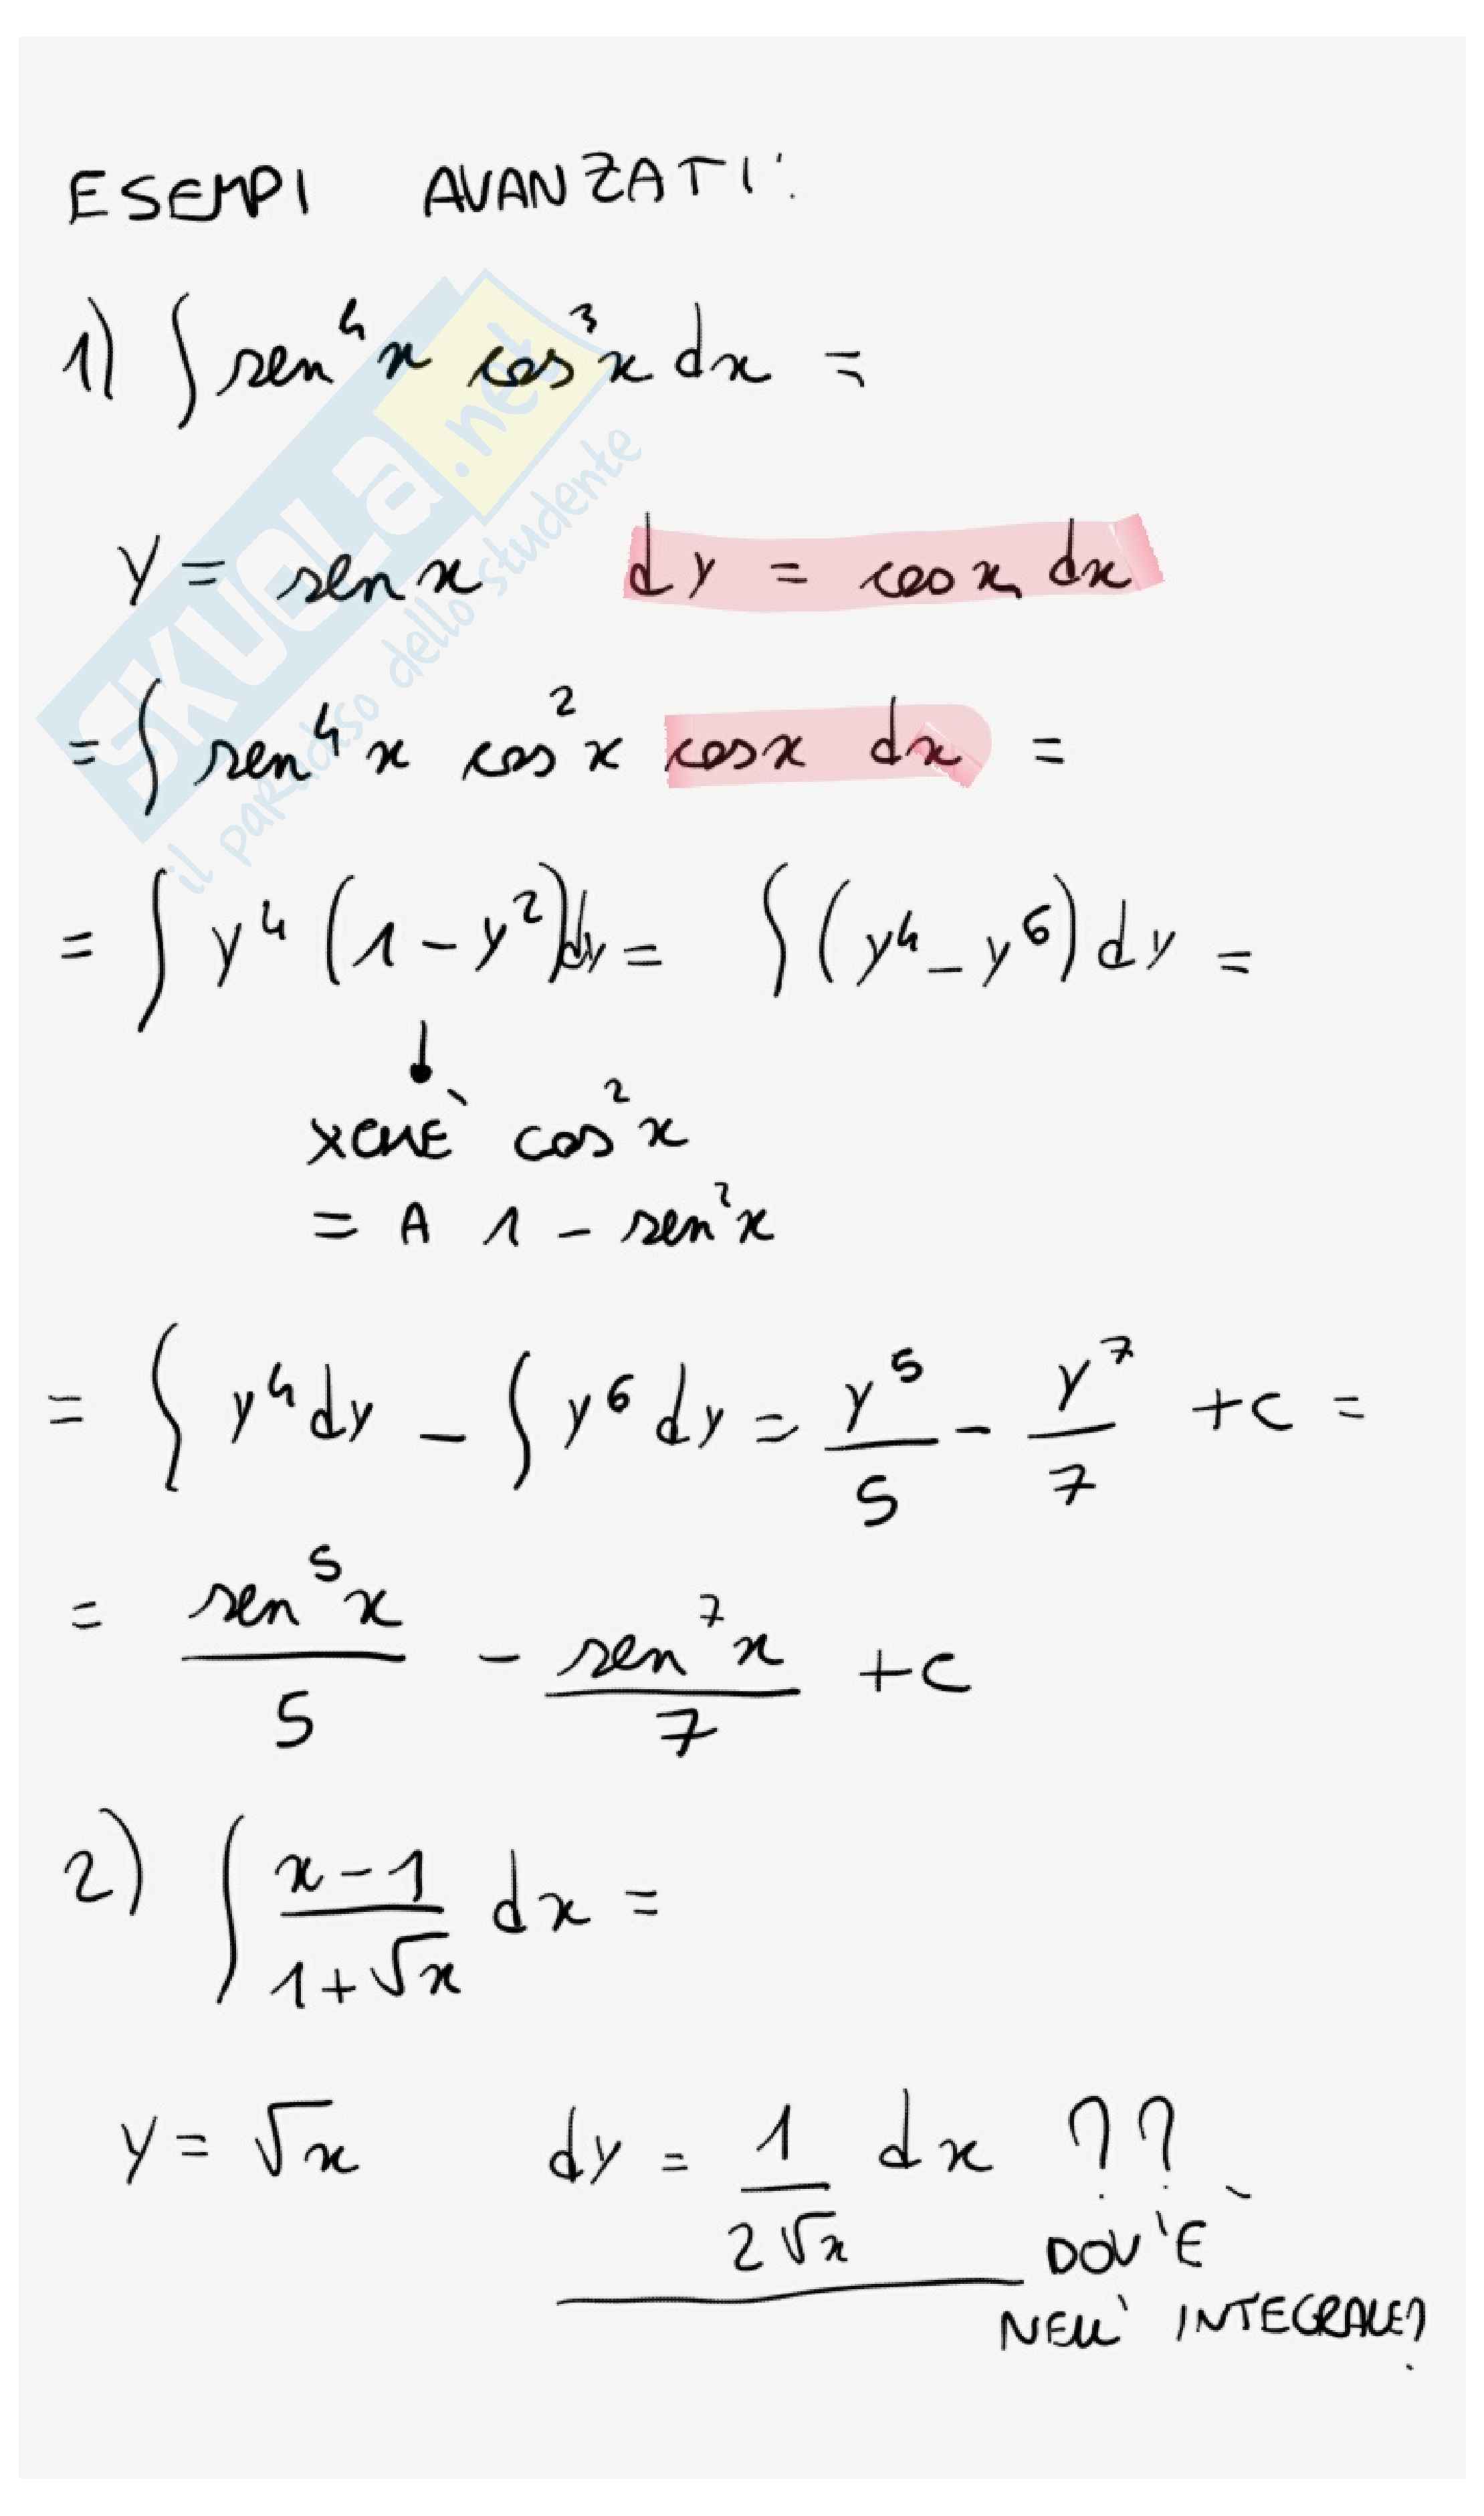 ESEMPI AVANZATI:
1) ∫ sen⁴x cos³x dx =
y = sen x dy = cos x dx
= ∫ sen⁴x cos²x cosx dx =
= ∫ y⁴ (1 - y²)dy = ∫ (y⁴ - y⁶) dy =
XCHÈ cos²x
= A 1 - sen²x
= ∫ y⁴ dy - ∫ y⁶ dy = y⁵/5 - y⁷/7 + c =
= sen⁵x/5 - sen⁷x/7 + c
2) ∫ (x-1)/(1+√x) dx =
y = √x dy = 1/(2√x) dx ??
DOV'È
NELL' INTEGRALE?
SKUOLA.net
il paradiso dello studente